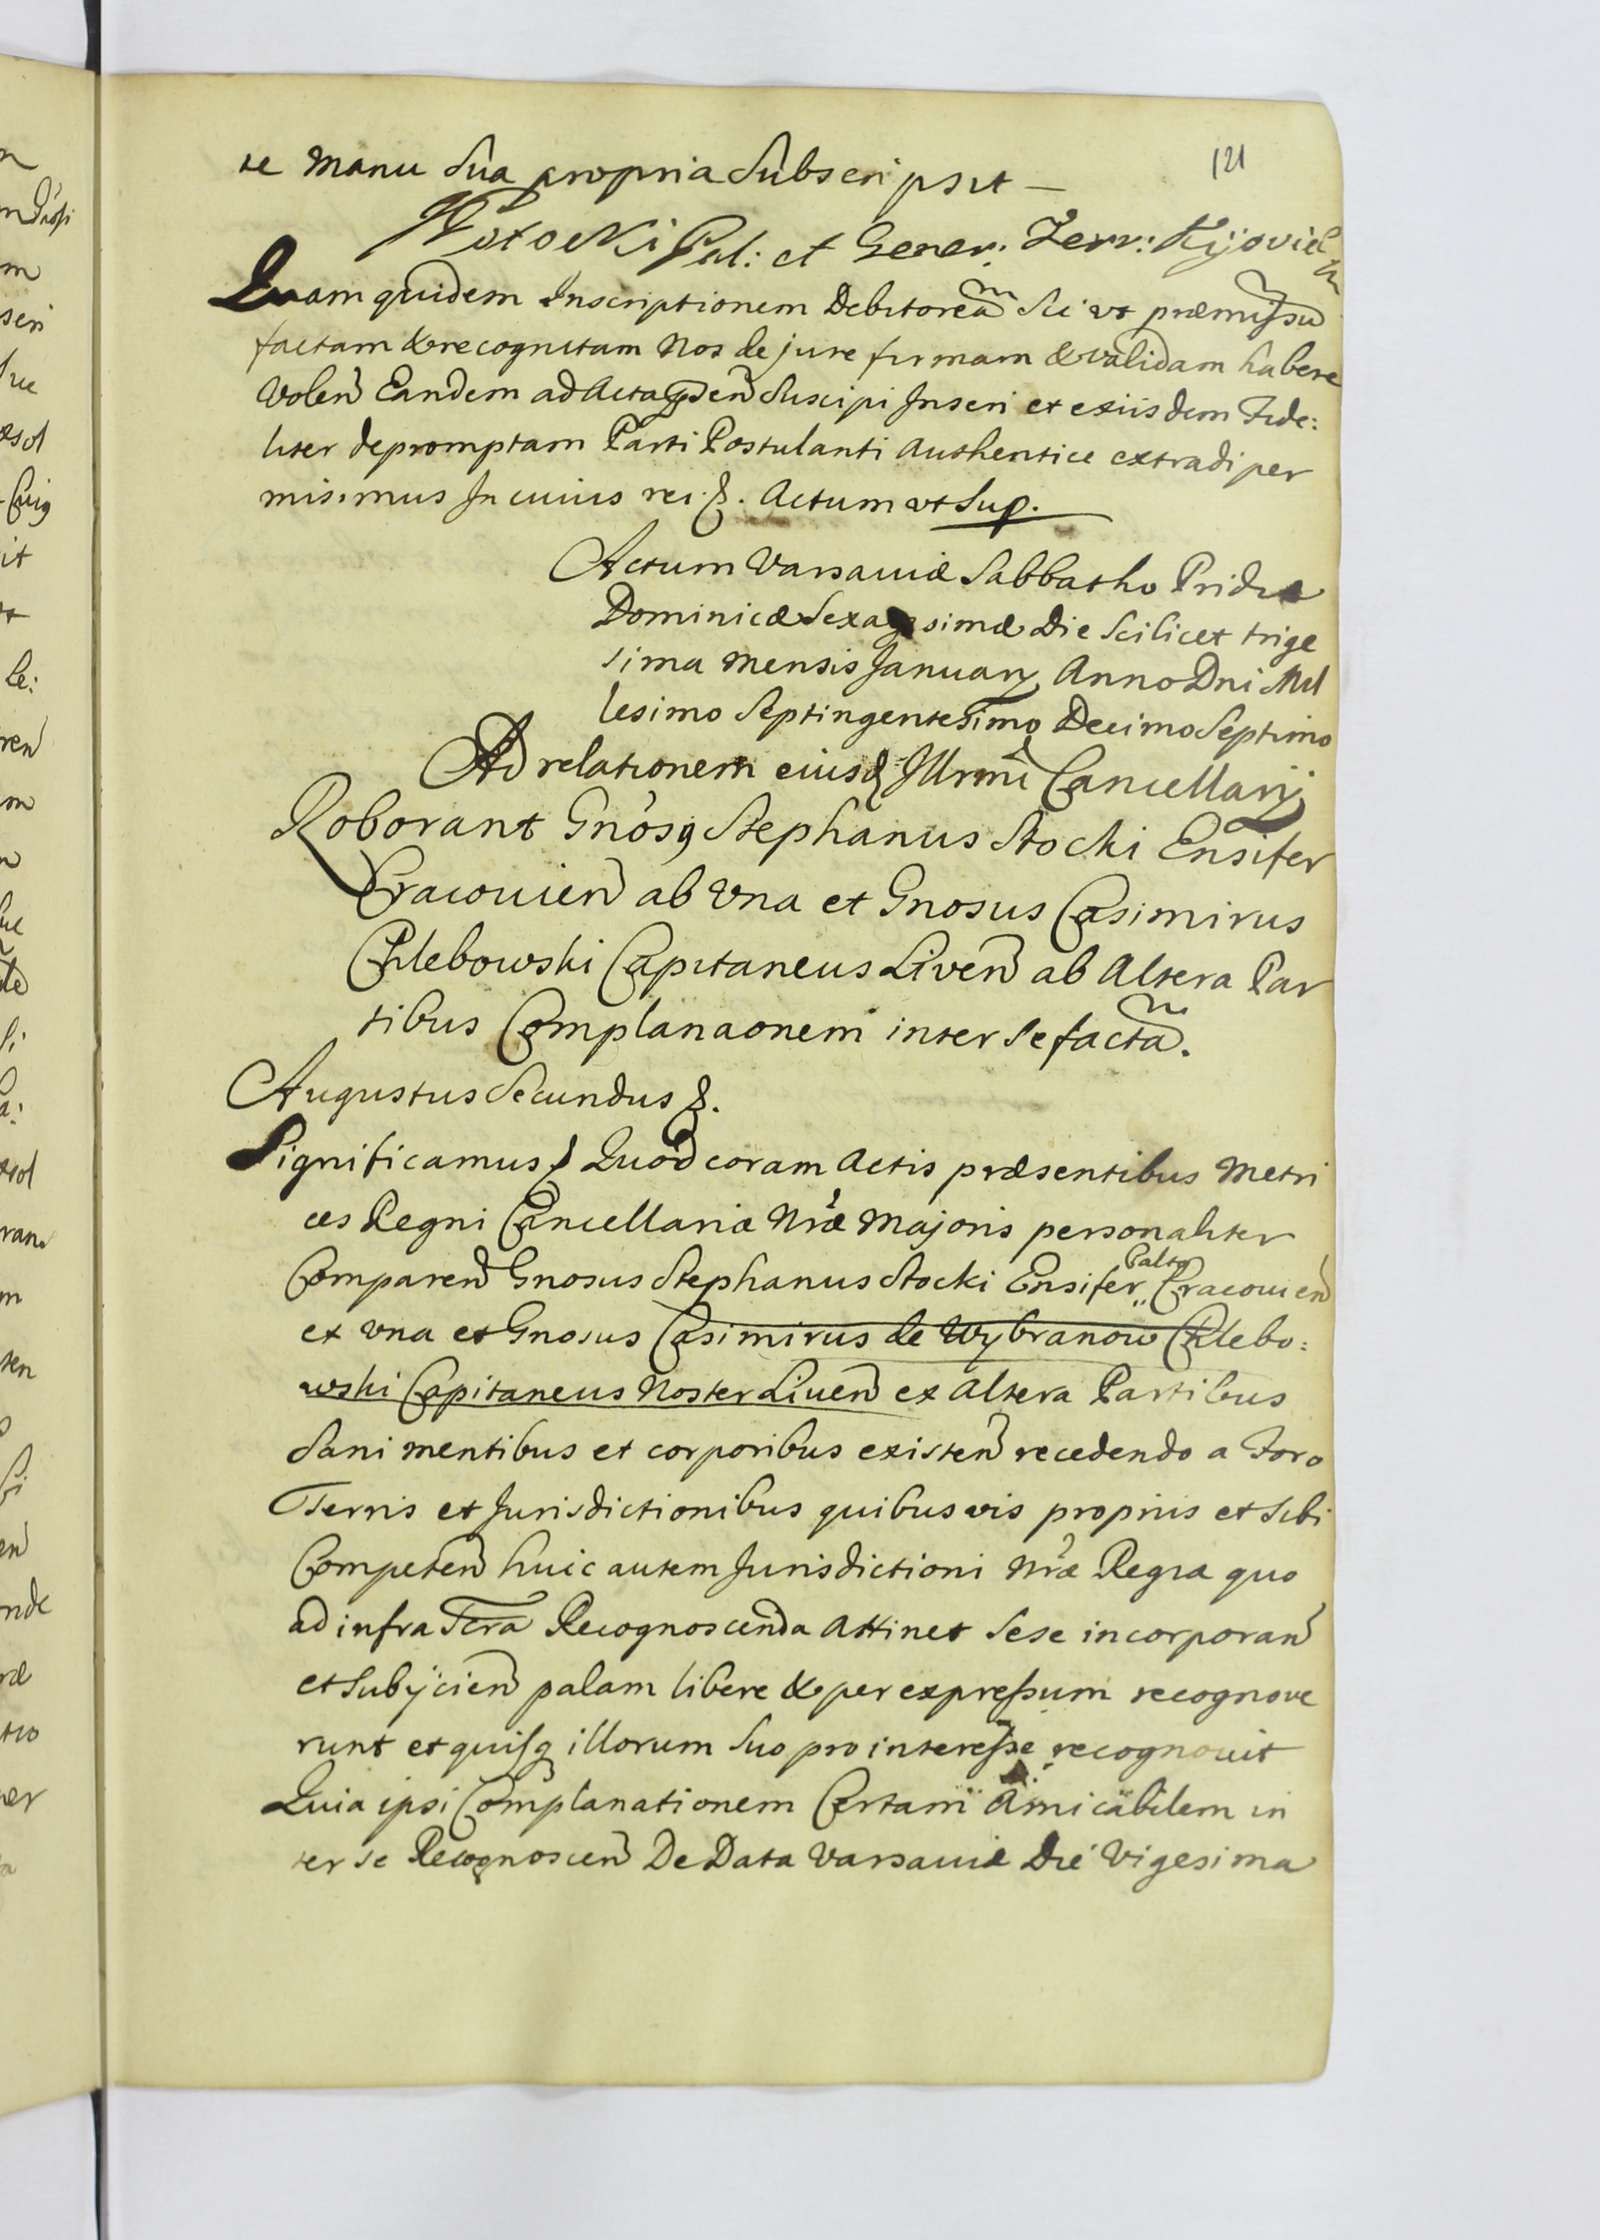 121
te manu sua propria subscripsit —
Potocki Pal: et Gener: Terr: Kijovien
Quam quidem Inscriptionem Debitoream Sci ut præmissu
factam & recognitam Nos de jure firmam & validam habere
Volen Eandem ad Acta psen Suscipi Inseri et ex iisdem Fide:
liter depromptam Parti Postulanti Authentice extradi per
misimus In cuius rei &. Actum ut Sup.
Actum Varsaviæ Sabbatho Pridie
Dominicæ Sexagesimæ Die Scilicet trige
sima mensis Januarij Anno Dni Mil
lesimo Septingentesimo Decimo Septimo
Ad relationem eiusd Illrmi Cancellarij
Roborant Gnosq Stephanus Stocki Ensifer
Cracovien ab una et Gnosus Casimirus
Chlebowski Capitaneus Liven ab Altera Par
tibus Complanaonem inter se facta.
Augustus Secundus &.
Significamus & Quod coram Actis præsentibus Metri
ces Regni Cancellariæ Nræ Majoris personaliter
Comparen Gnosus Stephanus Stocki Ensifer „ Palto Cracovien
ex una et Gnosus Casimirus de Wybranow Chlebo:
wski Capitaneus Noster Liven ex Altera Partibus
Sani mentibus et corporibus existen recedendo a Foro
Terris et Jurisdictionibus quibusvis propriis et sibi
Competen huic autem Jurisdictioni Nræ Regia quo
ad infra Scra Recognoscenda Attinet sese incorporan
et Subijcien palam libere & per expressum recognove
runt et quisq illorum suo pro interesse recognovit
Quia ipsi Complanationem Certam Amicabilem in
ter se Recognoscen De Data Varsaviæ Die Vigesima